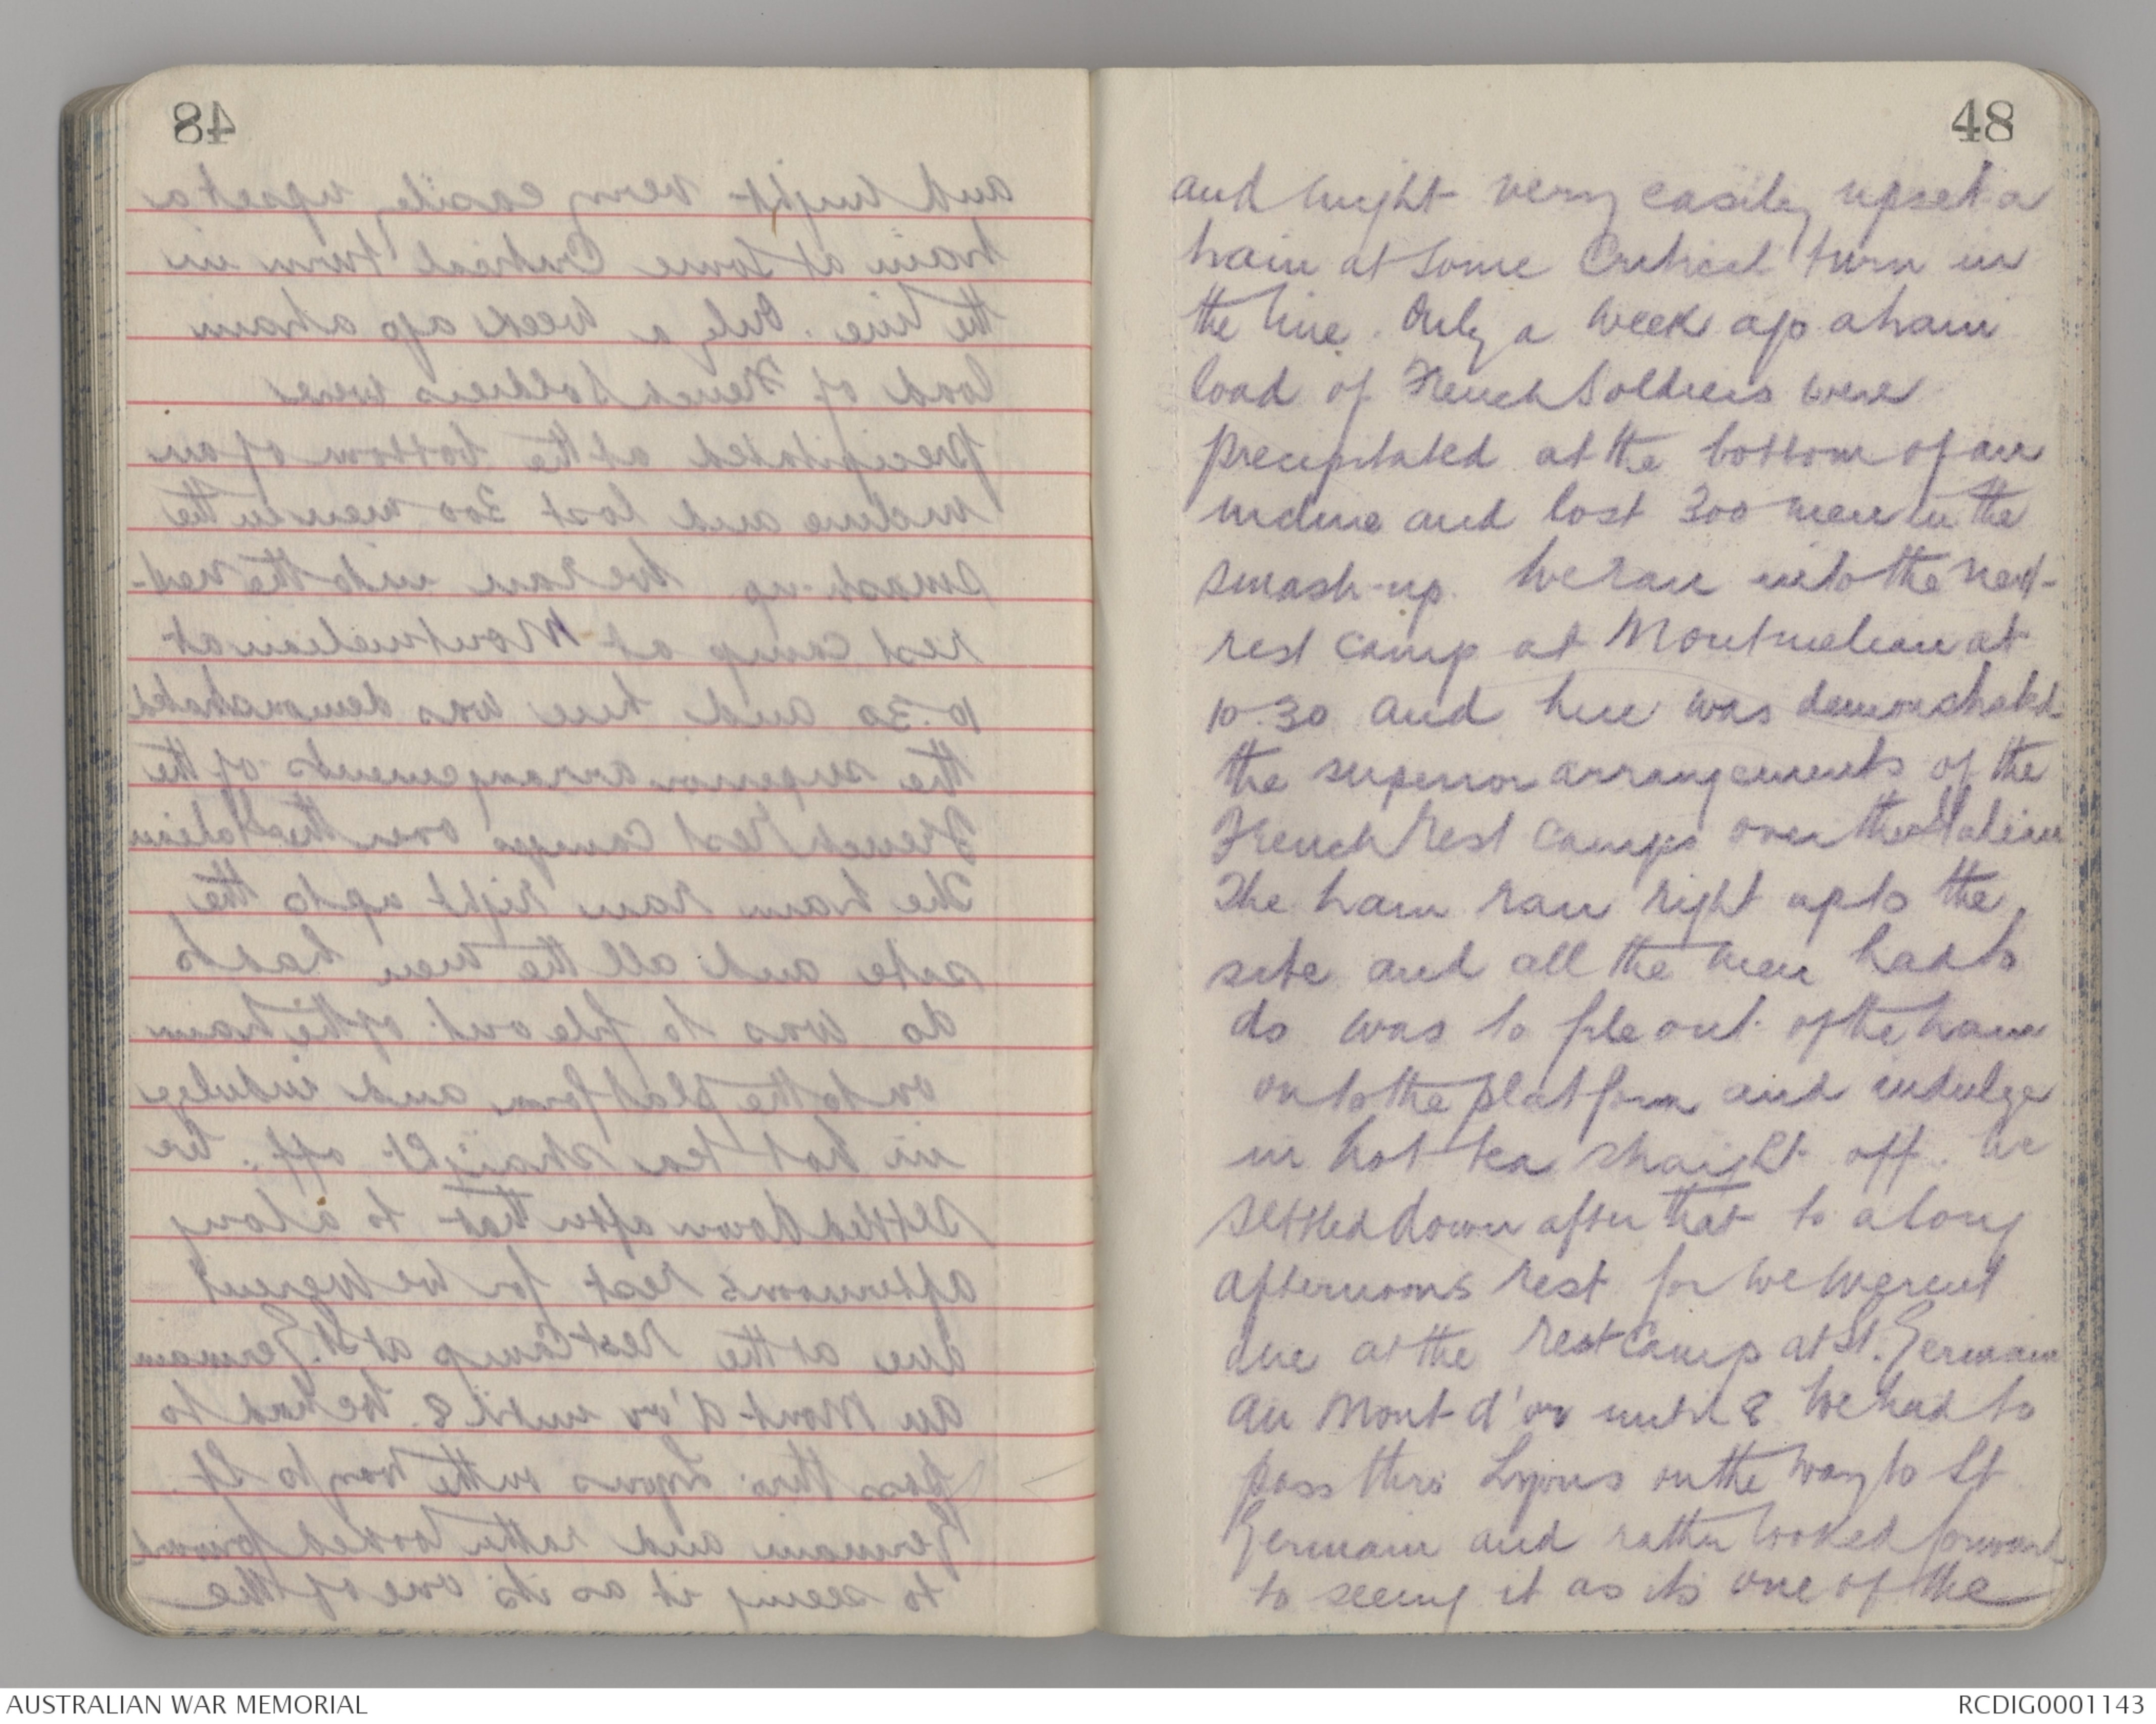 48
and might very easily upset a
train at some Critical turn in
the line. Only a week ago a train
load of French Soldiers were
precipitated at the bottom of an
incline and lost 300 men in the
smash-up. We ran into the next
rest camp at Montmelian at
10.30 and here was demonstrated
the superior arrangements of the
French Rest Camps over the Italian
The train ran right up to the
site and all the men had to
do was to file out of the train
on to the platform and indulge
in hot tea straight off. We
settled down after that to a long
afternoons rest for we werent
due at the rest Camp at St. Germain
au Mont d'or until 8. We had to
pass thro Lyons on the way to St
Germain and rather looked forward
to seeing it as its one of the
AUSTRALIAN WAR MEMORIAL
RCDIG0001143